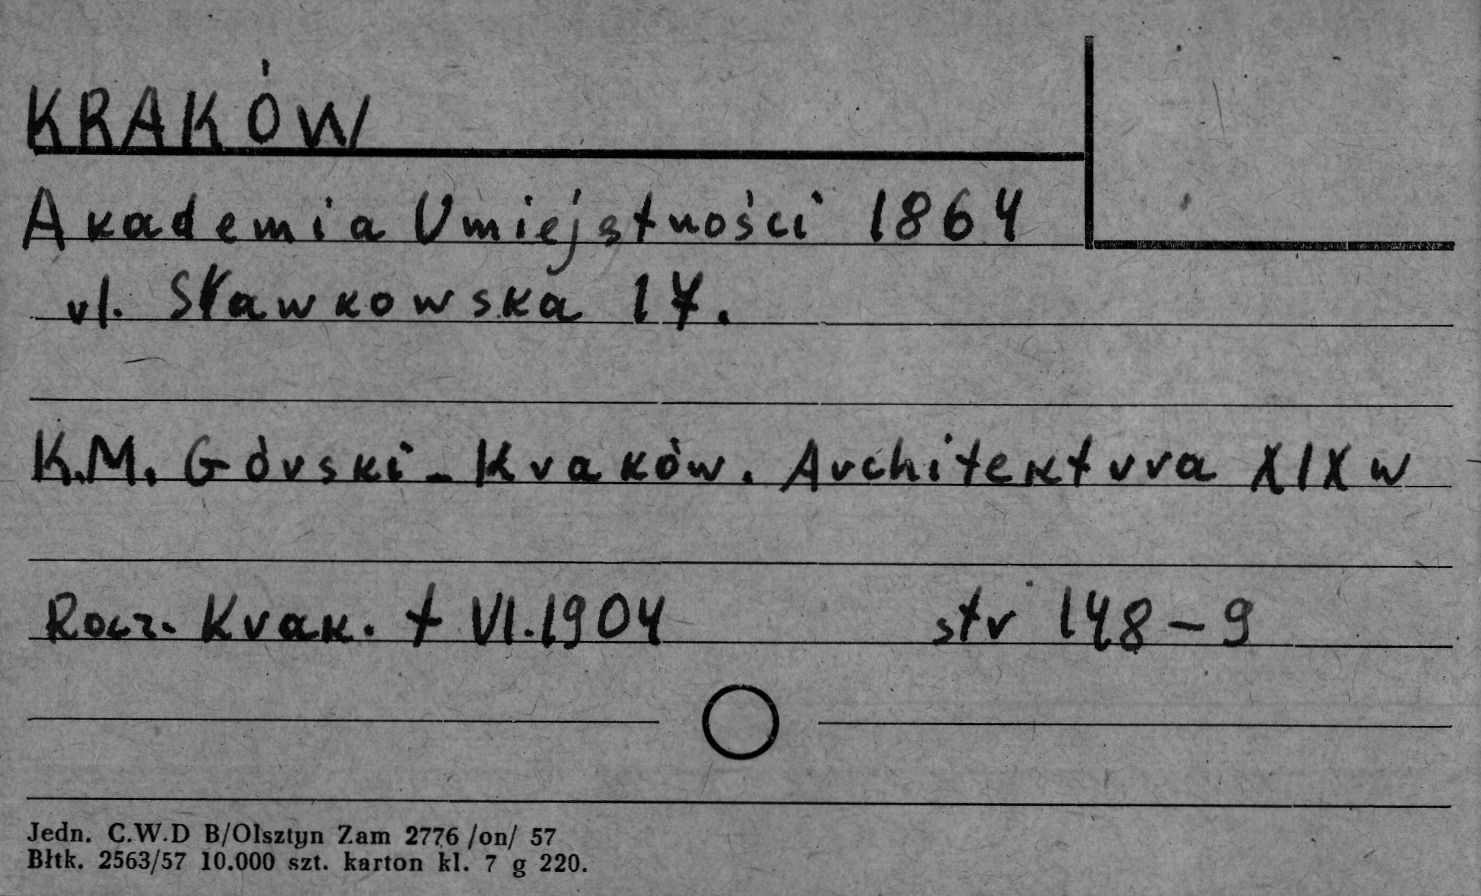 KRAKÓW
Akademia Umiejętności 1864
ul. Sławkowska 17.
K.M. Górski - Kraków. Architektura XIX w
Rocz. Krak. t VI.1904 str 148-9
Jedn. C.W.D B/Olsztyn Zam 2776 /on/ 57
Błtk. 2563/57 10.000 szt. karton kl. 7 g 220.